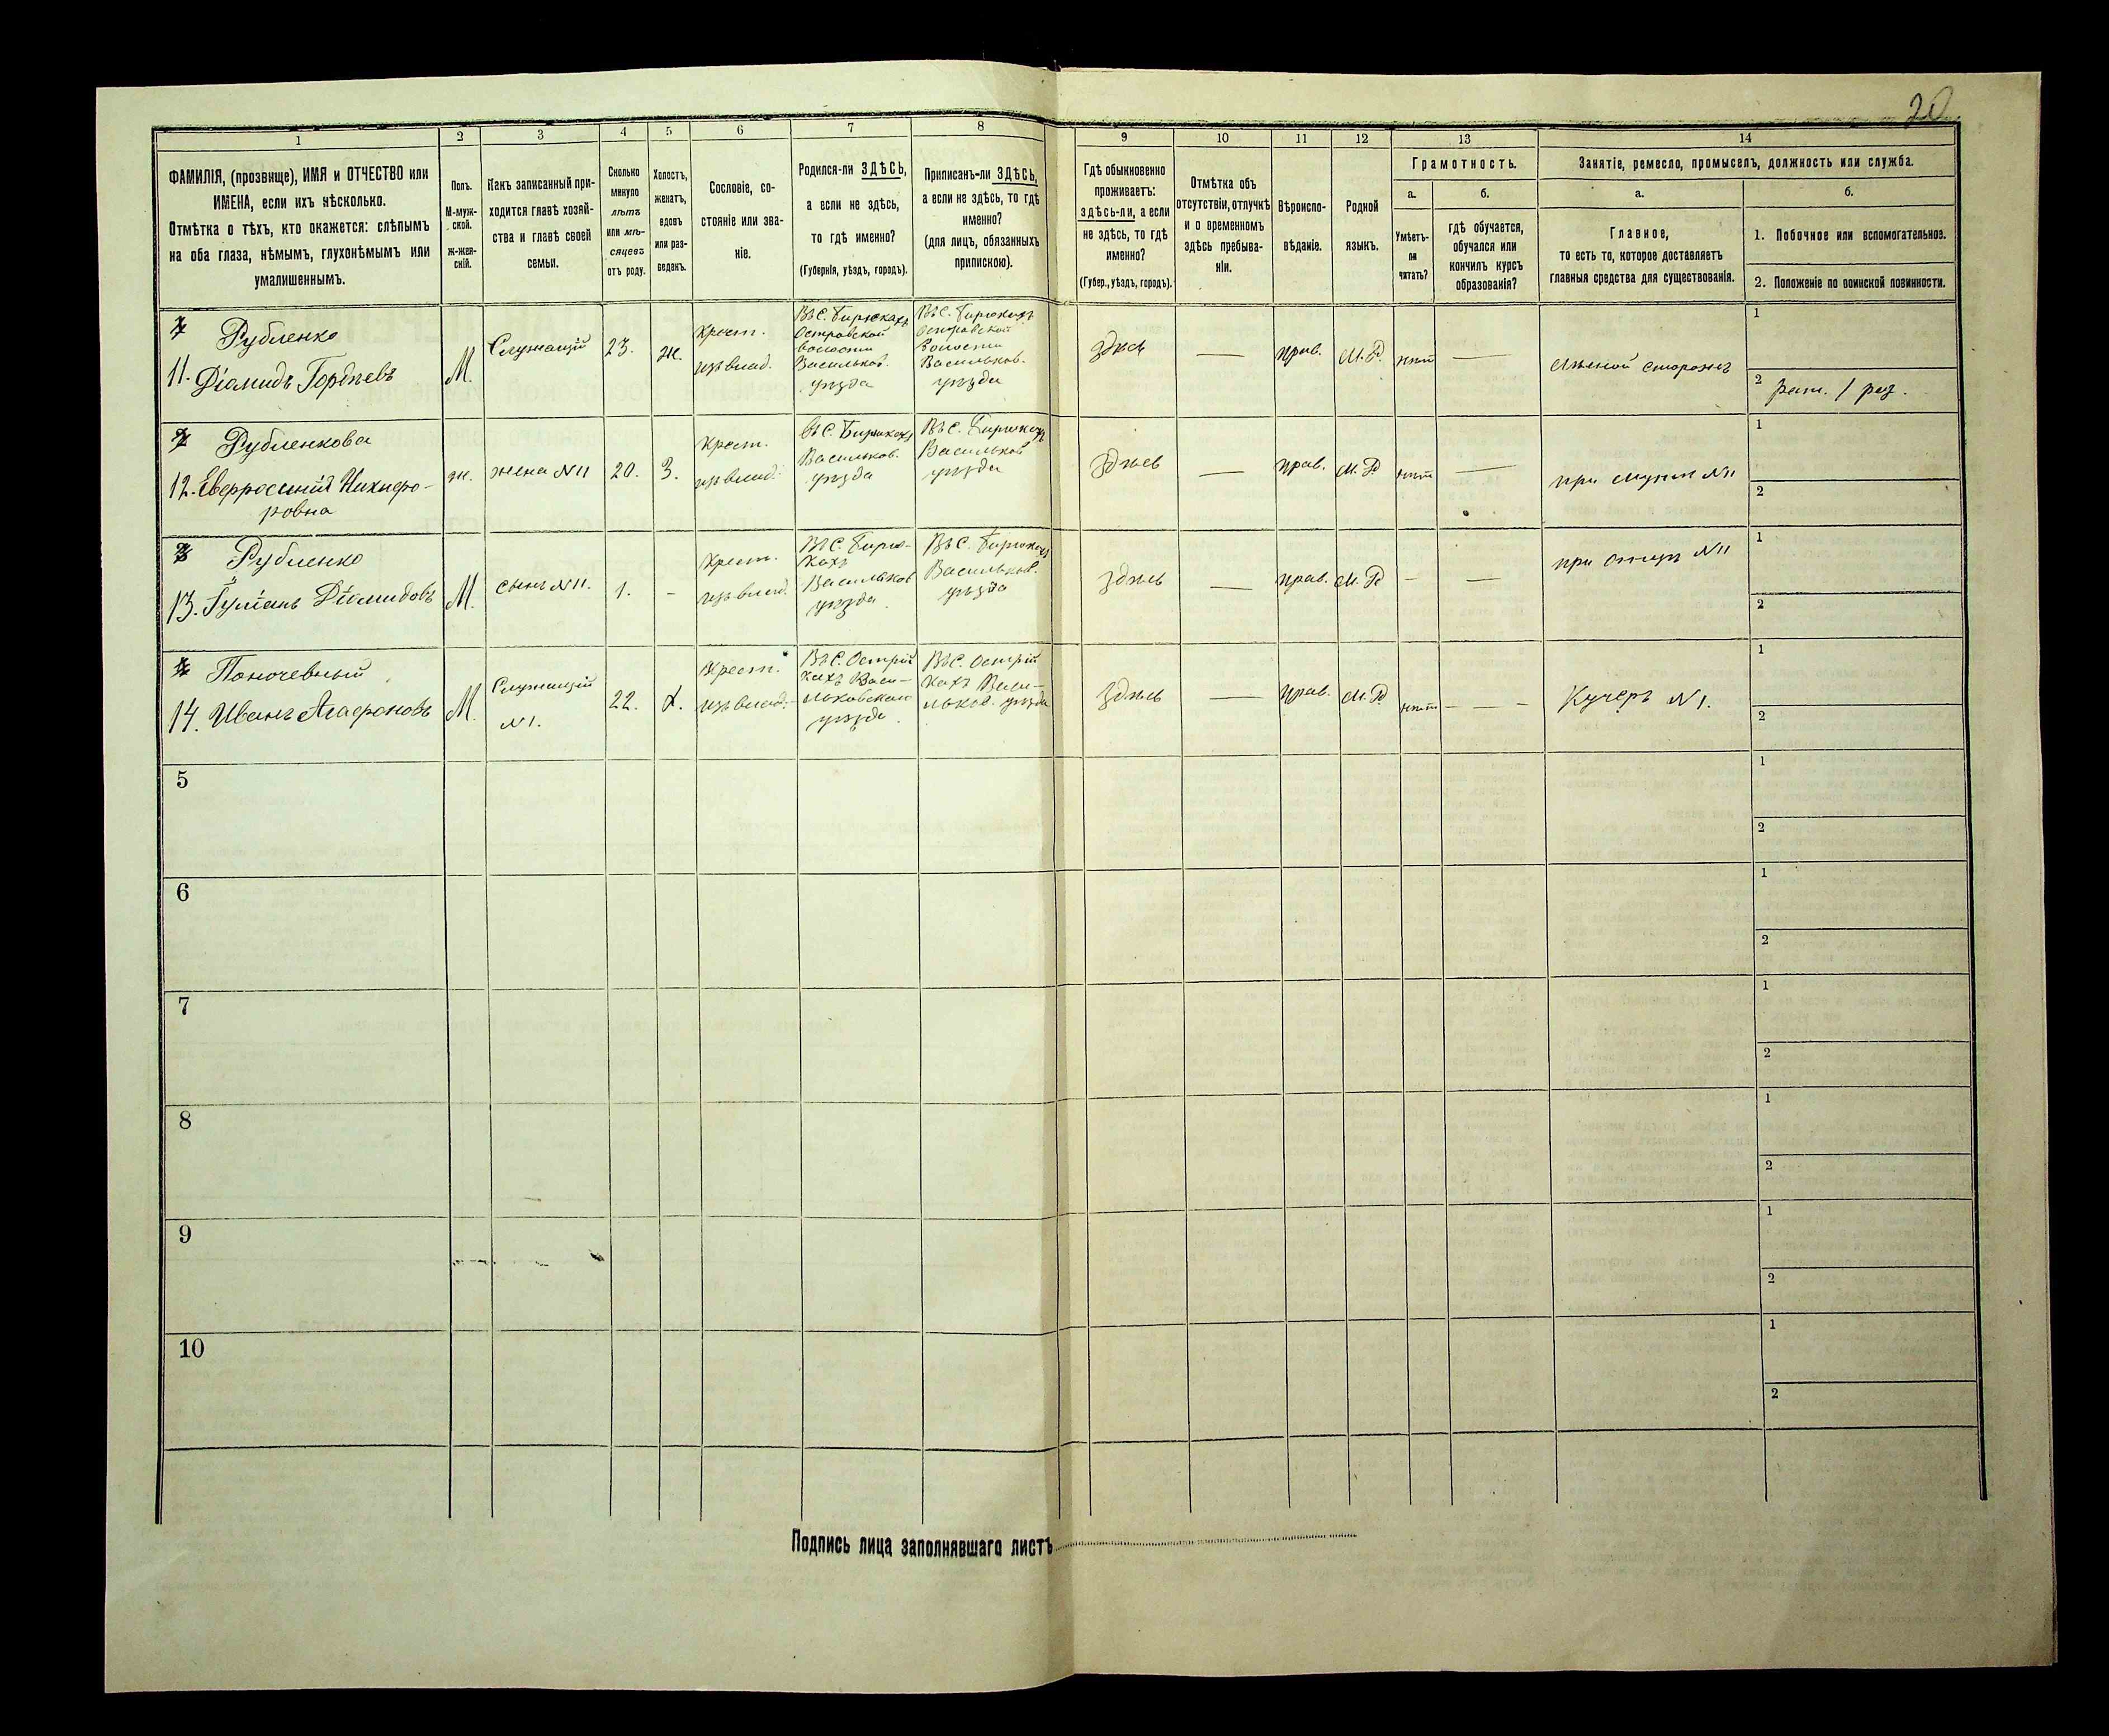 20
1
2
3
4
5
6
7
8
9
10
11
12
13
14
ФАМИЛІЯ, (прозвище), ИМЯ и ОТЧЕСТВО или
ИМЕНА, если ихъ нѣсколько.
Отмѣтка о тѣхъ, кто окажется: слѣпымъ
на оба глаза, нѣмымъ, глухонѣмымъ или
умалишеннымъ.
Полъ.
М-муж-
ской.
Ж-жен-
скій.
Какъ записанный при-
ходится главѣ хозяй-
ства и главѣ своей
семьи.
Сколько
минуло
лѣтъ
или мѣ-
сяцевъ
отъ роду.
Холостъ,
женатъ,
вдовъ
или раз-
веденъ.
Сословіе, со-
стояніе или зва-
ніе.
Родился-ли ЗДѢСЬ,
а если не здѣсь,
то гдѣ именно?
(Губернія, уѣздъ, городъ).
Приписанъ-ли ЗДѢСЬ,
а если не здѣсь, то гдѣ
именно?
(для лицъ, обязанныхъ
припискою).
Гдѣ обыкновенно
проживаетъ:
здѣсь-ли, а если
не здѣсь, то гдѣ
именно?
(Губер., уѣздъ, городъ).
Отмѣтка объ
отсутствіи, отлучкѣ
и о временномъ
здѣсь пребыва-
ніи.
Вѣроиспо-
вѣданіе.
Родной
языкъ.
Грамотность.
а.
Умѣетъ-
ли
читать?
б.
гдѣ обучается,
обучался или
кончилъ курсъ
образованія?
Занятіе, ремесло, промыселъ, должность или служба.
а.
Главное,
то есть то, которое доставляетъ
главныя средства для существованія.
б.
1. Побочное или вспомогательное.
2. Положеніе по воинской повинности.
Рубленко
11. Діамидъ Гордѣевъ
М.
Служащій
23.
ж.
Крест.
изъ влад.
Въ С. Бирюкахъ
Островской
волости
Васильков.
уѣзда
Въ С. Бирюкахъ
Островской
волости
Васильков.
уѣзда
здѣсь
—
прав.
М. Р.
нѣтъ
—
лѣсной сторожъ
1
2 рат. / раз.
Рубленкова
12. Евфросинія Никифо-
ровна
ж.
жена №11
20.
З.
Крест.
изъ влад.
Въ С. Бирюкахъ
Васильков.
уѣзда
Въ С. Бирюкахъ
Васильков
уѣзда
здѣсь
—
прав.
М. Р.
нѣтъ
—
при мужѣ №11
1
2
Рубленко
13. Діамидовъ
М.
сынъ №11.
1.
-
Крест.
изъ влад.
Въ С. Бирю-
кахъ
Васильков
уѣзда
Въ С. Бирюкахъ
Васильков.
уѣзда
здѣсь
—
прав.
М. Р
-
—
при отцѣ №11
1
2
Поночевный
14. Иванъ Агафоновъ
М.
Служащій
№1.
22.
Х.
Крест.
изъ влад.
Въ С. Острій
кахъ Васи-
льковскаго
уѣзда
Въ С. Острій
кахъ Васи-
льков. уѣзда
здѣсь
—
прав.
М. Р
нѣтъ
- - -
Кучеръ №1.
1
2
5
1
2
6
1
2
7
1
2
8
1
2
9
1
2
10
1
2
Подпись лица заполнявшаго листъ